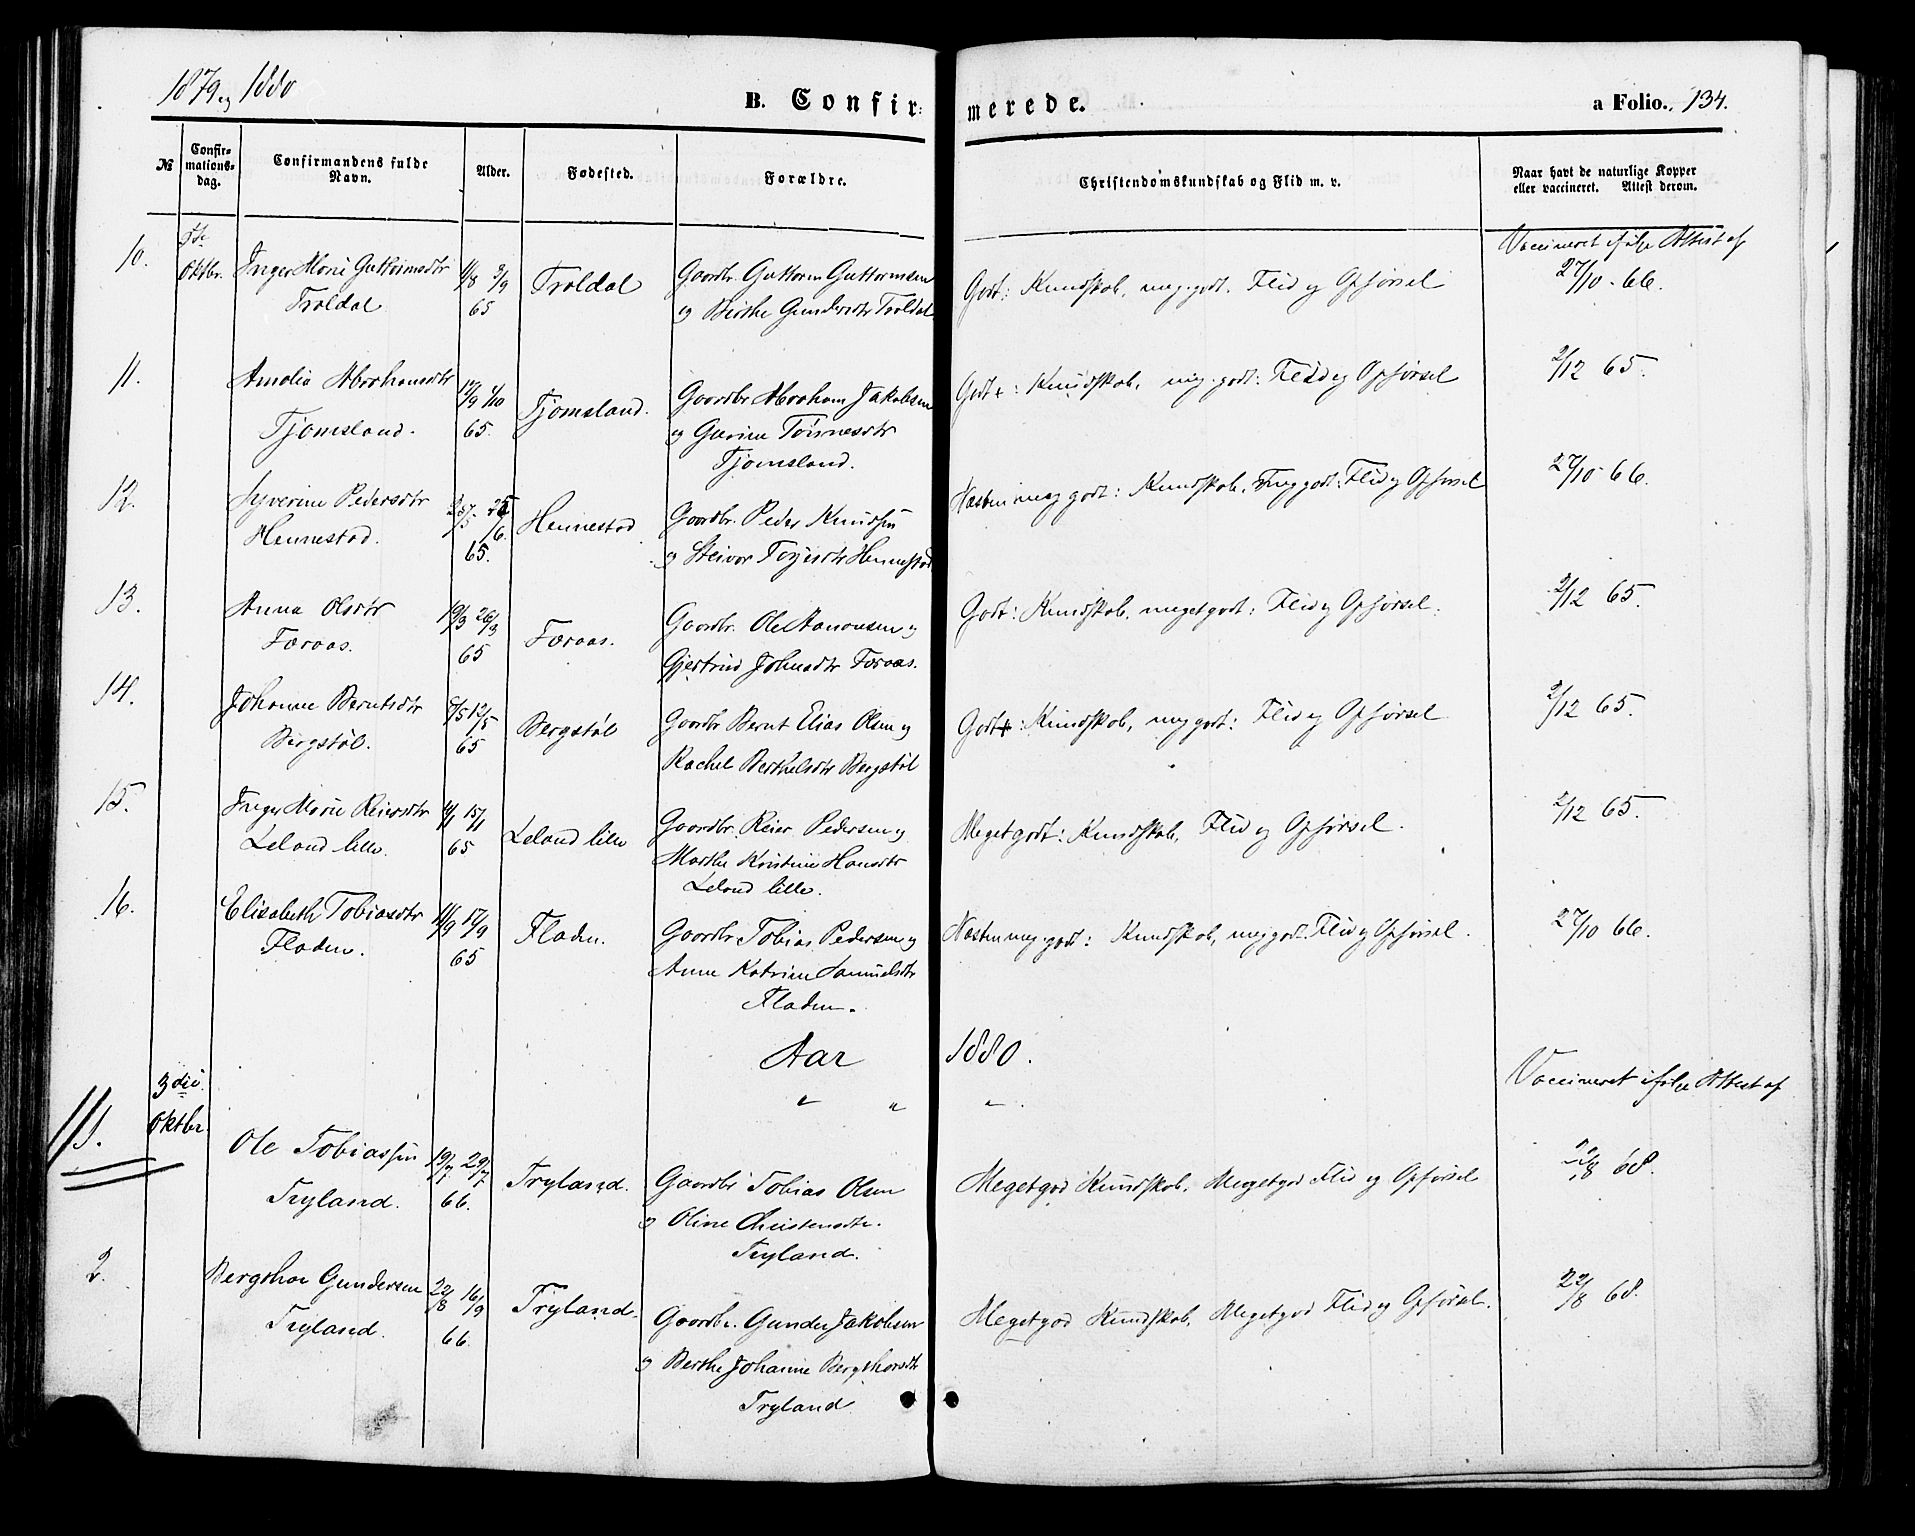 1879 og 1880
B. Confirmerede.
a Folio. 134.
No
Confirmationsdag.
Confirmandens fulde Navn.
Alder.
Fødested.
Forældre.
Christendomskundskab og Flid m. v.
Naar havt de naturlige Kopper eller vaccineret. Attest derom.
Vaccineret ifølge Attest af
10.
Oktbr.
Inger Marie Guttormsdtr
Troldal
65
Troldal
Gaardbr. Guttorm Guttormsen
og Birthe Gundersdtr Troldal
Godt: Kundskab, meg. godt. Flid og Opførsel
27/10 - 66.
11.
Amalia Abrahamsdtr
Tjomsland.
65.
Tjomsland.
Gaardbr Abraham Jakobsen
og Gurine Tønnesdtr
Tjomsland.
Godt+: Kundskab, meg. godt: Flid og Opførsel
2/12 65.
12.
Syverine Pedersdtr
Hennestad.
65.
Hennestad
Gaardbr. Peder Knudsen
og Steivor Torjesdtr Hennestad
Næsten meg godt: Kundskab, meg godt: Flid og Opførsel
27/10 - 66.
13.
Anna Olsdtr
Færaas.
19/3 26/3
65
Færaas.
Gaardbr. Ole Aanonsen og
Gjertrud Johnsdtr Færaas.
Godt: Kundskab, meget godt: Flid og Opførsel.
2/12 65.
14.
Johanne Berntsdtr
Bergstøl.
65
Bergstøl
Gaardbr Bernt Elias Olsen og
Rachel Berthelsdtr Bergstøl
Godt+: Kundskab, meg godt: Flid og Opførsel
2/12 65.
15.
Inger Marie Reiersdtr
Leland lille.
65
Leland lille
Gaardbr. Reier Pedersen og
Marthe Kristine Hansdtr
Leland lille.
Meget godt: Kundskab, Flid og Opførsel.
2/12 65.
16.
Elisabeth Tobiasdtr
Fladen.
11/9 17/9
65
Fladen.
Gaardbr Tobias Pedersen og
Anne Katrine Samuelsdtr
Fladen.
Næsten meg. godt: Kundskab, meg godt. Flid og Opførsel.
27/10 66.
Aar 1880.
" " "
Vaccineret ifølge Attest af
3die
Oktbr.
1.
Ole Tobiassen
Tryland.
19/7 29/7
66.
Tryland.
Gaardbr Tobias Olsen
og Oline Christensdtr.
Tryland.
Megetgod Kundskab, Megetgod Flid og Opførsel
22/8 68.
2.
Bergthor Gundersen
Tryland.
22/8 16/9
66.
Tryland.
Gaardbr. Gunder Jakobsen
og Berthe Johanne Bergthorsdtr
Tryland
Megetgod Kundskab, Megetgod Flid og Opførsel.
22/8 68.